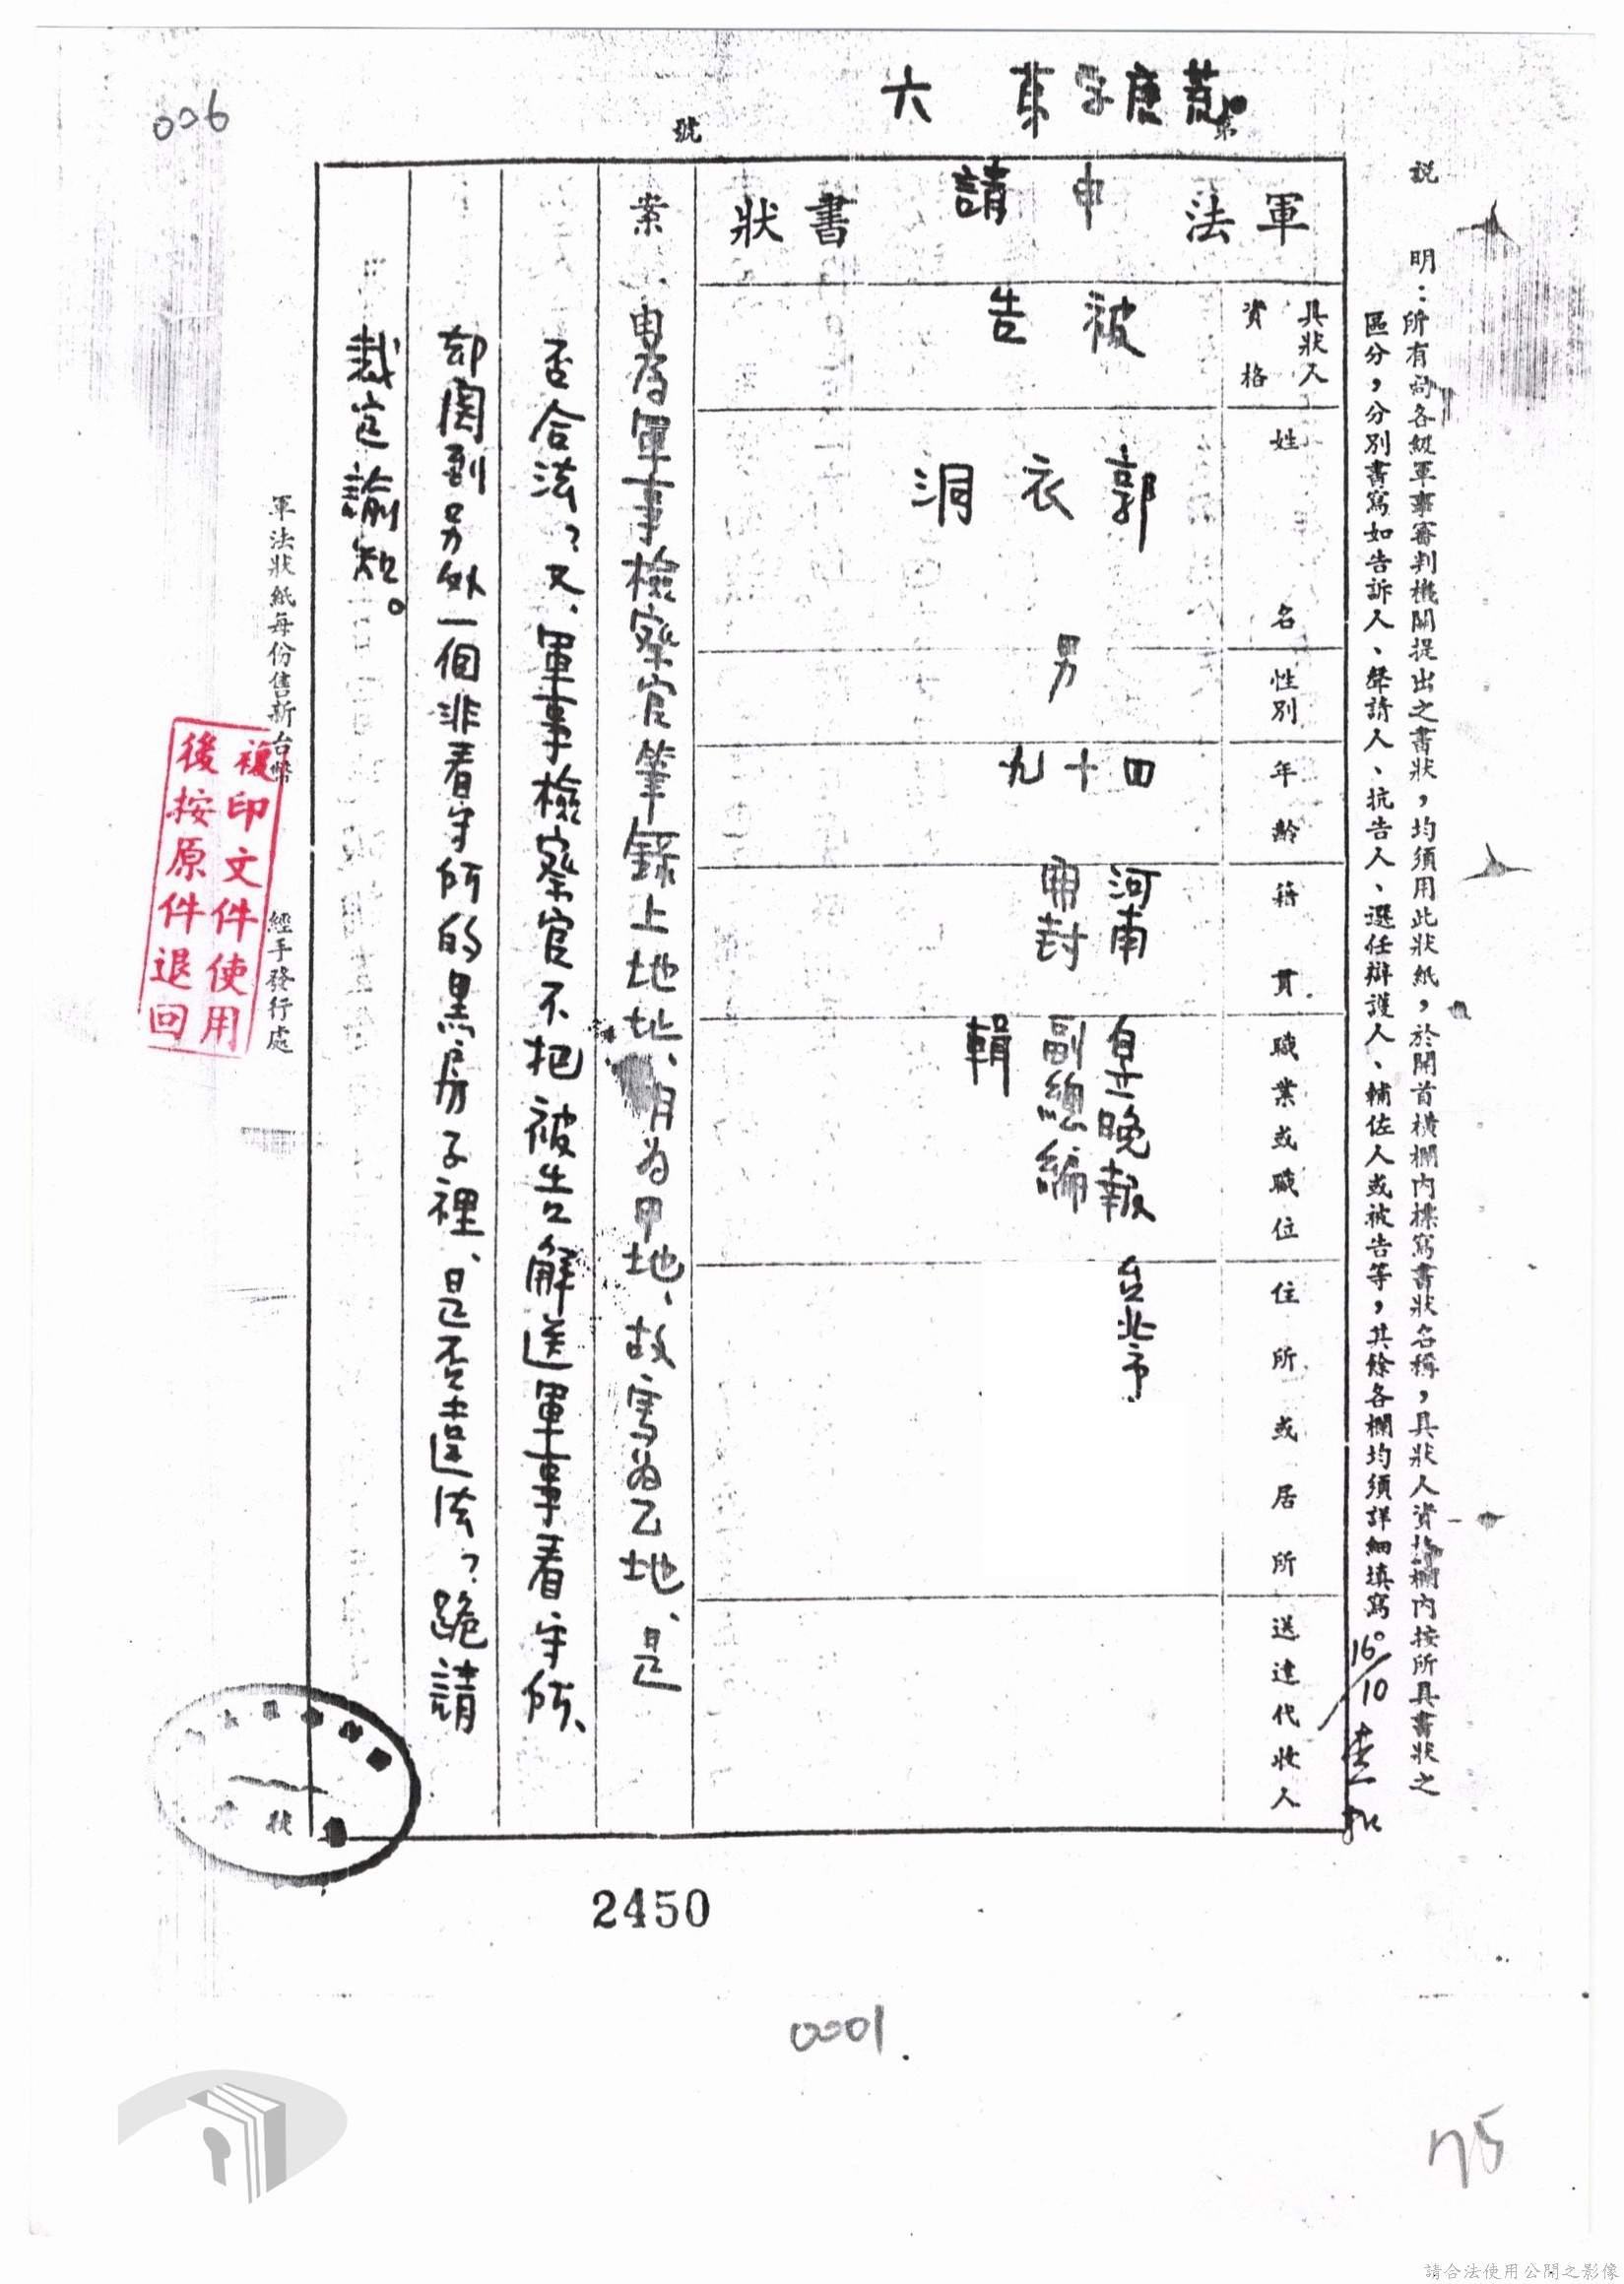 說明：所有向各級軍事審判機關提出之書狀，均須用此狀紙，於開首橫欄內標寫書狀名稱，具狀人資格欄內按所具書狀之
區分，分別書寫如告訴人、聲請人、抗告人、選任辯護人、輔佐人或被告等，其餘各欄均須詳細填寫
16/10
第 號
六
軍法 申請 書狀
具狀人資格
姓名
性別
年齡
籍貫
職業或職位
住所或居所
送達代收人
被告
郭衣洞
男
四十九
河南
開封
自立晚報
副總編
輯
台北市
案
軍事檢察官筆錄上地址、明為甲地、故寫為乙地、是
否合法？又、軍事檢察官不把被告解送軍事看守所、
却關到另外一個非看守所的黑房子裡、是否違法？跪請
裁定諭知。
軍法狀紙每份售新台幣
經手發行處
複印文件使用
後按原件退回
狀
006
2450
0001
75
請合法使用公開之影像